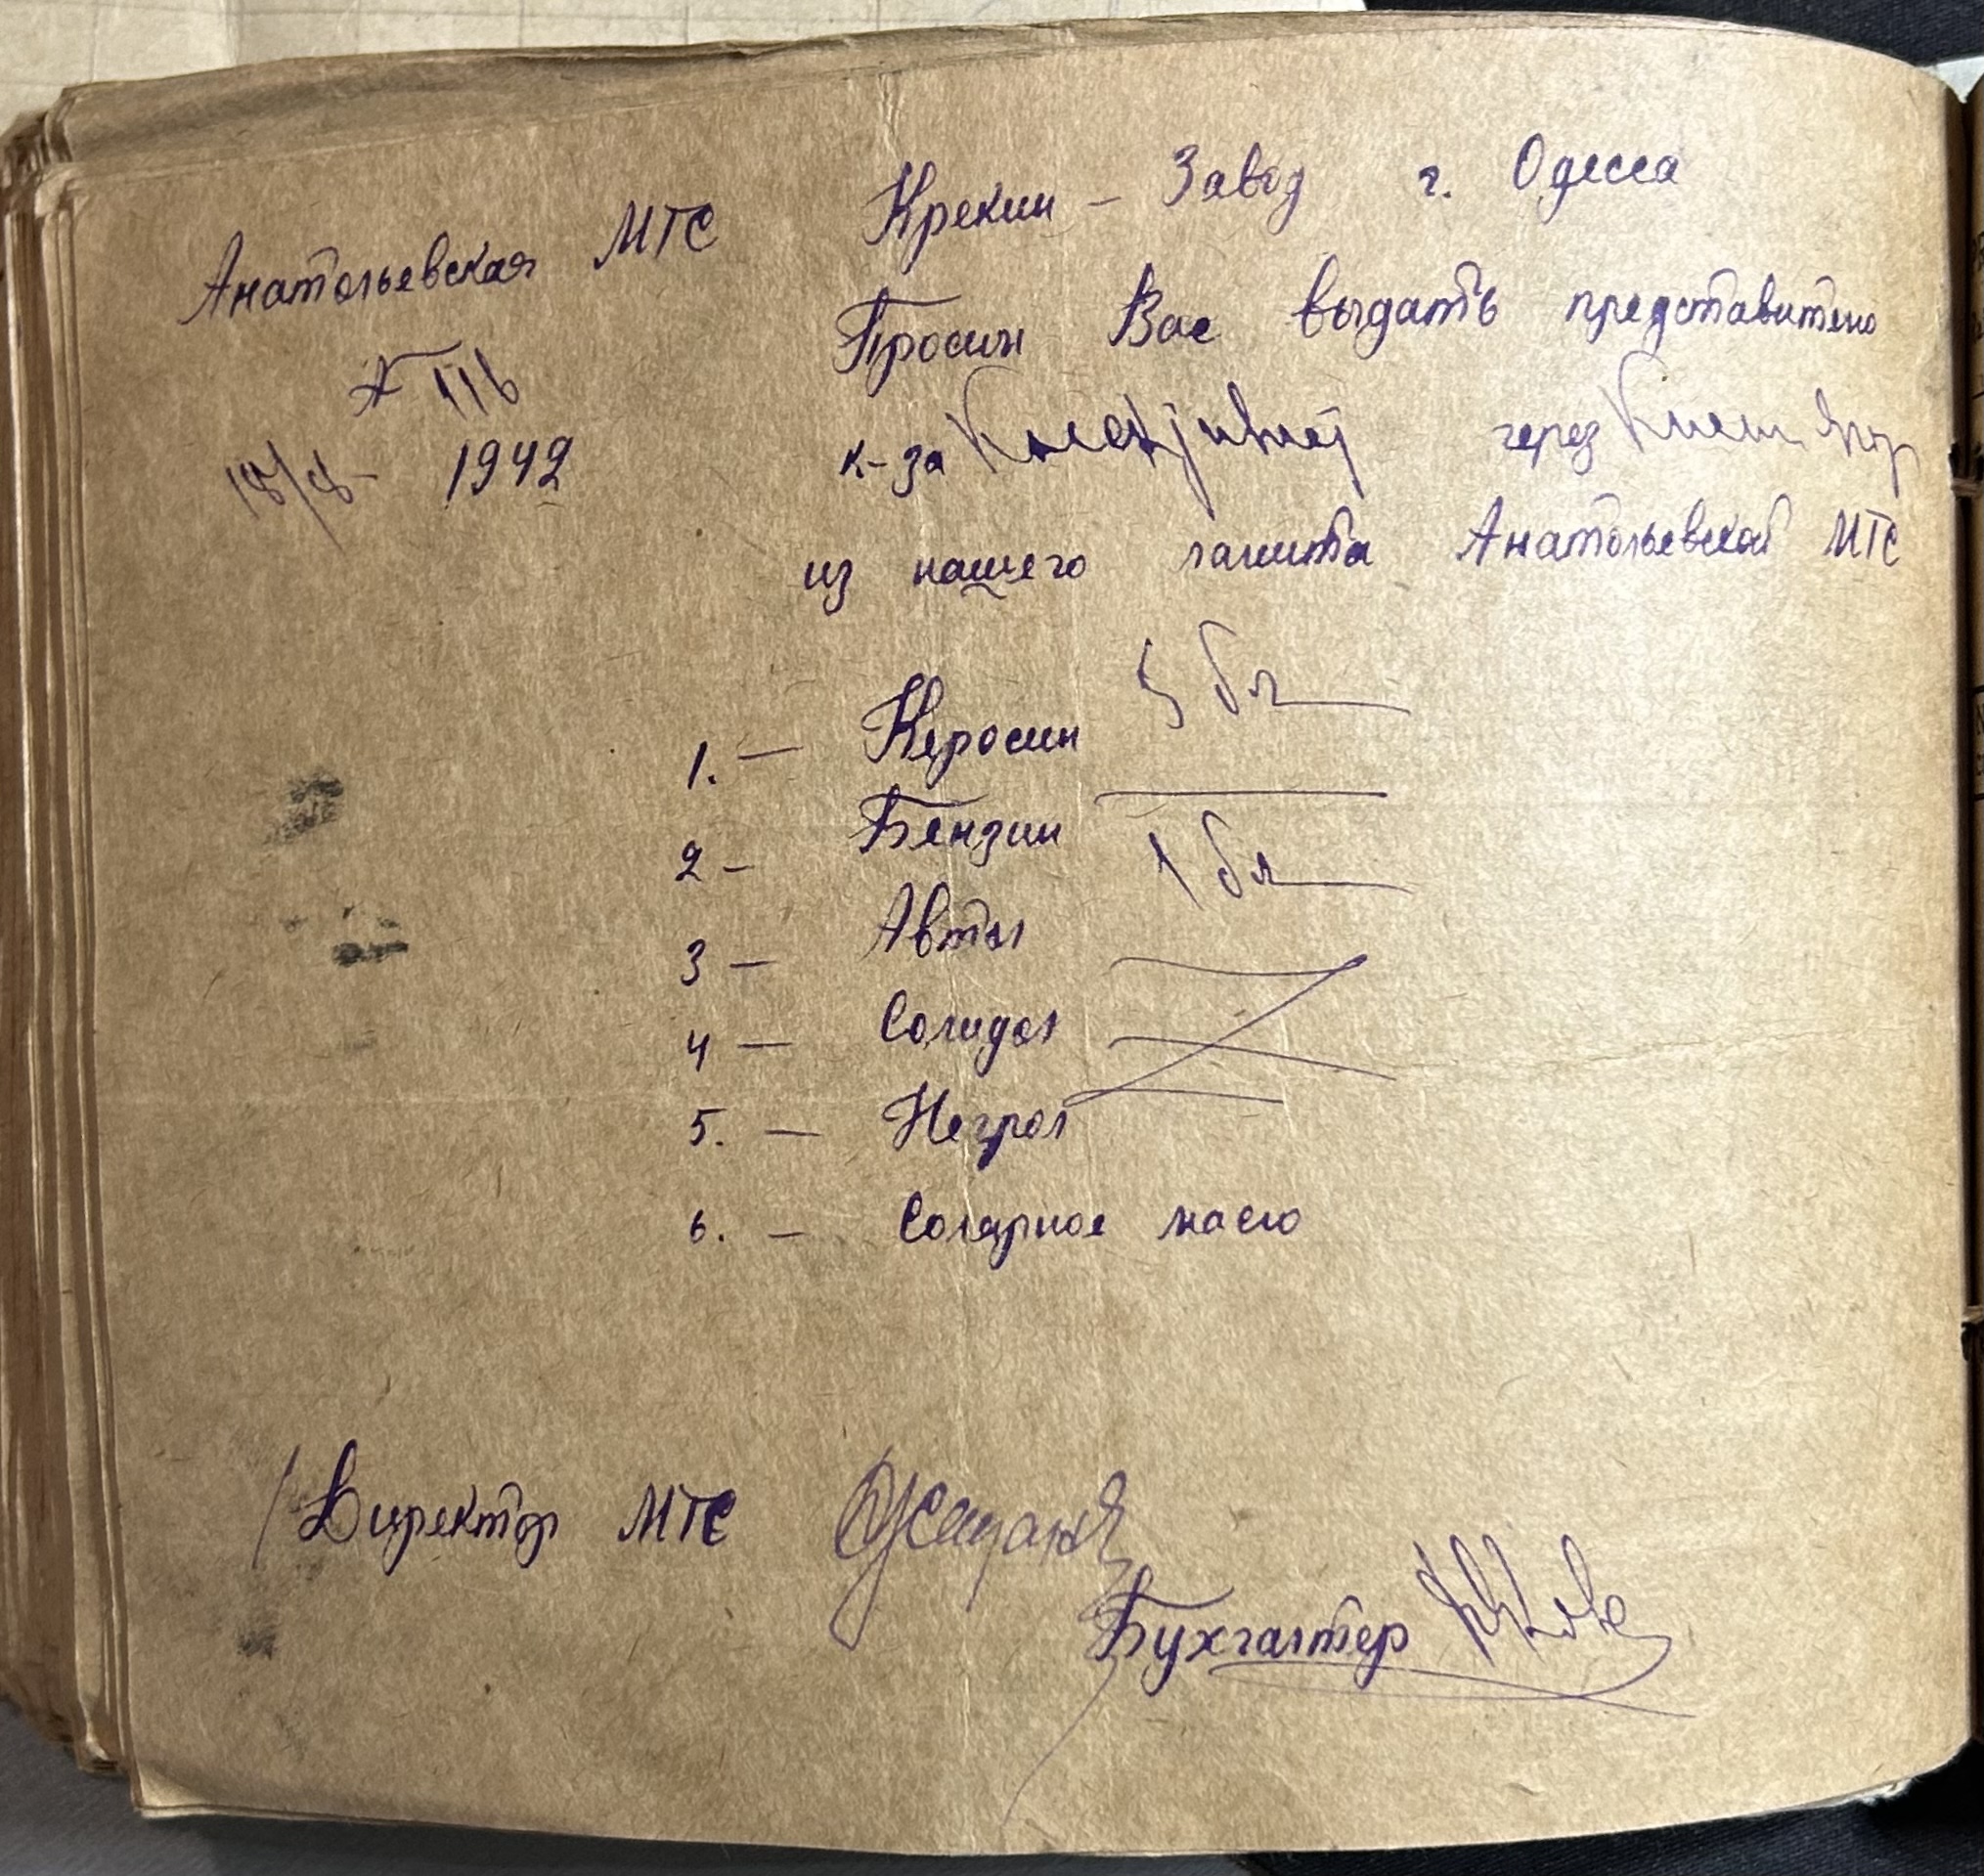 Анатольевская МТС
№ 116
18/8 - 1942
Крекин - Завод г. Одесса
Просим Вас выдать представителю
к-за через
из нашего лимита Анатольевской МТС
1. — Керосин 5 бл
2 - Бензин 1 бл
3 — Автол
4 — Солидол
5. — Негрол
6. — Солярное масло
Директор МТС
Бухгалтер